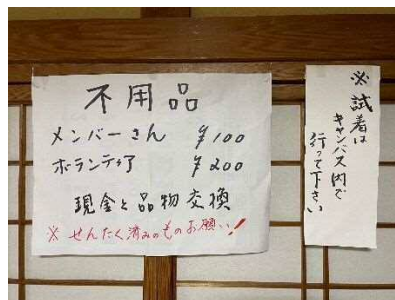 不用品
メンバーさん ¥100
ボランティア ¥200
現金と品物交換
※ せんたく済みのものお願い!
※ 試着は
キャンバス内で
行って下さい